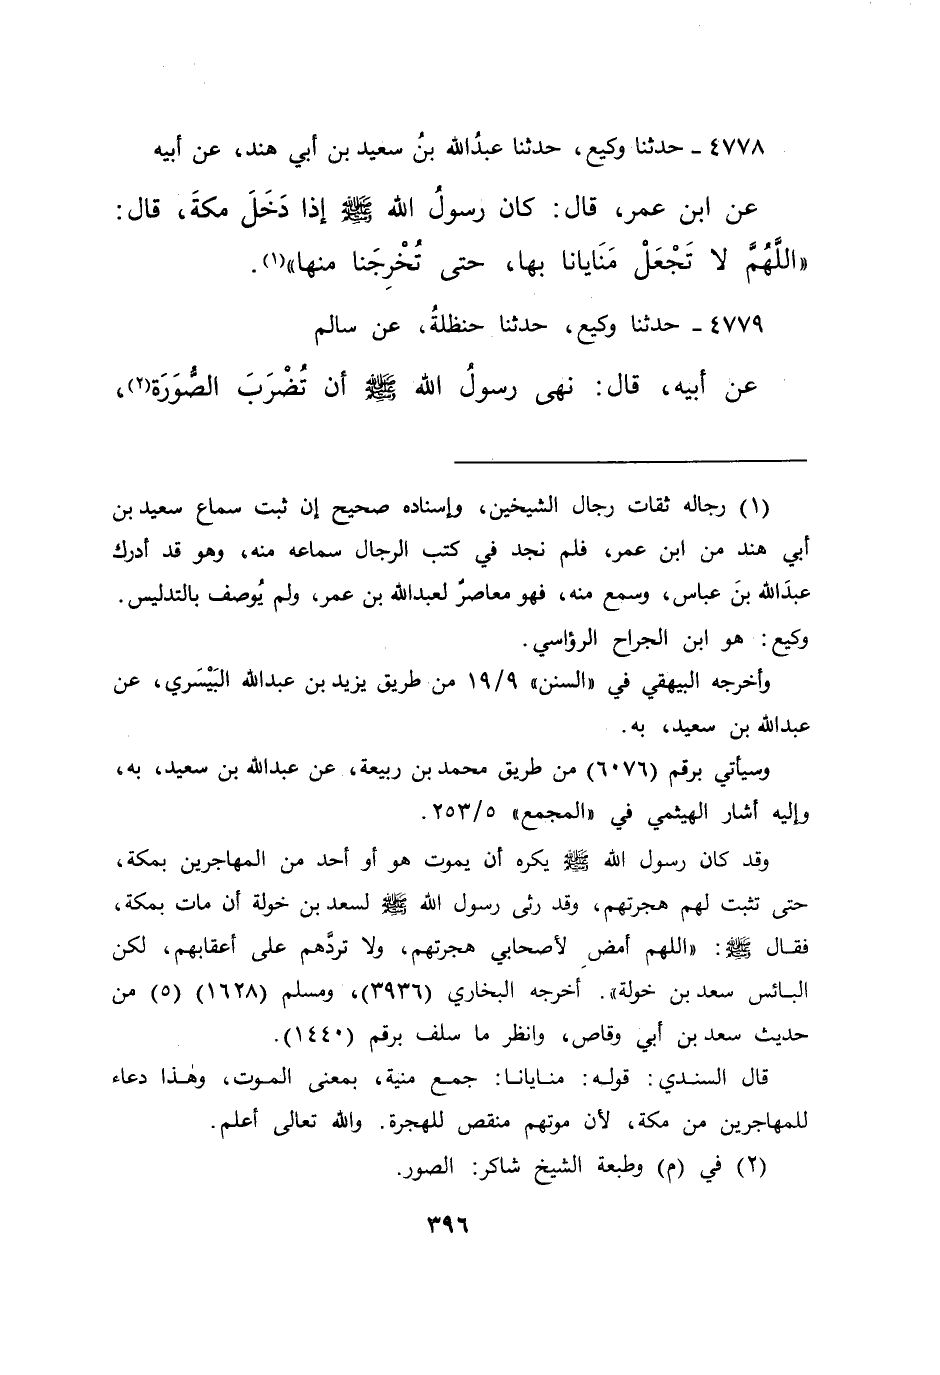 ٤٧٧٨ ـ حدثنا وكيع، حدثنا عبدُالله بنُ سعيد بن أبي هند، عن أبيه
عن ابن عمر، قال: كان رسولُ الله ﷺ إذا دَخَلَ مكةَ، قال:
«اللَّهُمَّ لا تَجْعَلْ مَنَايانا بها، حتى تُخْرِجَنا منها»(١).
٤٧٧٩ ـ حدثنا وكيع، حدثنا حنظلةُ، عن سالم
عن أبيه، قال: نهى رسولُ الله ﷺ أن تُضْرَبَ الصُّوَرَة(٢)،
(١) رجاله ثقات رجال الشيخين، وإسناده صحيح إن ثبت سماع سعيد بن
أبي هند من ابن عمر، فلم نجد في كتب الرجال سماعه منه، وهو قد أدرك
عبدَالله بنَ عباس، وسمع منه، فهو معاصرٌ لعبدالله بن عمر، ولم يُوصف بالتدليس.
وكيع: هو ابن الجراح الرؤاسي.
وأخرجه البيهقي في «السنن» ١٩/٩ من طريق يزيد بن عبدالله البَيْسَري، عن
عبدالله بن سعيد، به.
وسيأتي برقم (٦٠٧٦) من طريق محمد بن ربيعة، عن عبدالله بن سعيد، به،
وإليه أشار الهيثمي في «المجمع» ٢٥٣/٥.
وقد كان رسول الله ﷺ يكره أن يموت هو أو أحد من المهاجرين بمكة،
حتى تثبت لهم هجرتهم، وقد رثى رسول الله ﷺ لسعد بن خولة أن مات بمكة،
فقال ﷺ: «اللهم أمضِ لأصحابي هجرتهم، ولا تردَّهم على أعقابهم، لكن
البائس سعد بن خولة». أخرجه البخاري (٣٩٣٦)، ومسلم (١٦٢٨) (٥) من
حديث سعد بن أبي وقاص، وانظر ما سلف برقم (١٤٤٠).
قال السندي: قوله: منايانا: جمع منية، بمعنى الموت، وهٰذا دعاء
للمهاجرين من مكة، لأن موتهم منقص للهجرة. والله تعالى أعلم.
(٢) في (م) وطبعة الشيخ شاكر: الصور.
٣٩٦